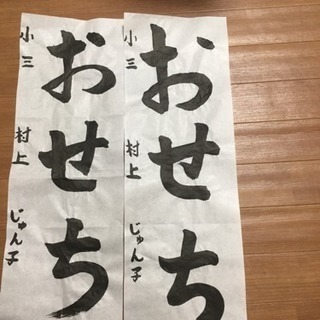 おせち
小三 村上 じゅん子
おせち
小三 村上 じゅん子